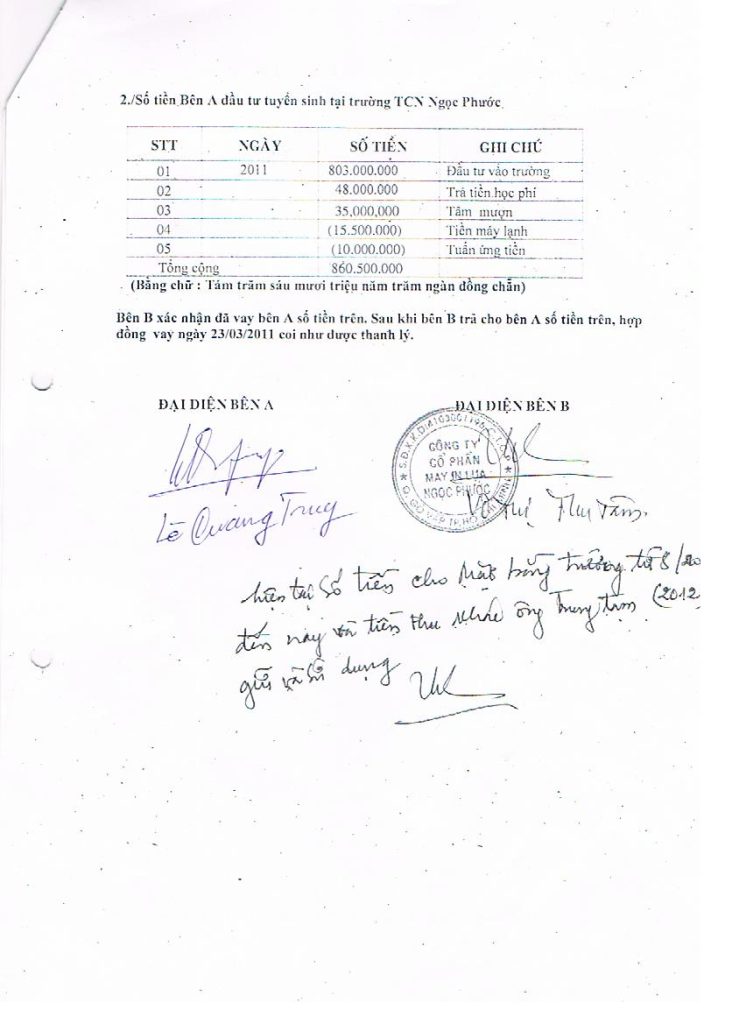 2./Số tiền Bên A đầu tư tuyển sinh tại trường TCN Ngọc Phước
STT NGÀY SỐ TIỀN GHI CHÚ
01 2011 803.000.000 Đầu tư vào trường
02 48.000.000 Trả tiền học phí
03 35,000,000 Tâm mượn
04 (15.500.000) Tiền máy lạnh
05 (10.000.000) Tuấn ứng tiền
Tổng cộng 860.500.000
(Bằng chữ : Tám trăm sáu mươi triệu năm trăm ngàn đồng chẵn)
Bên B xác nhận đã vay bên A số tiền trên. Sau khi bên B trả cho bên A số tiền trên, hợp
đồng vay ngày 23/03/2011 coi như được thanh lý.
ĐẠI DIỆN BÊN A ĐẠI DIỆN BÊN B
CÔNG TY
CỔ PHẦN
MAY IN LỤA
NGỌC PHƯỚC
Q. GÒ VẤP TP. HỒ CHÍ MINH
Lê Quang Trung Võ Thị Thu Tâm.
hiện tại số tiền cho mặt bằng trường từ 8/20
đến nay và tiền thu khác ông Trung tạm (2012
giữ và sử dụng